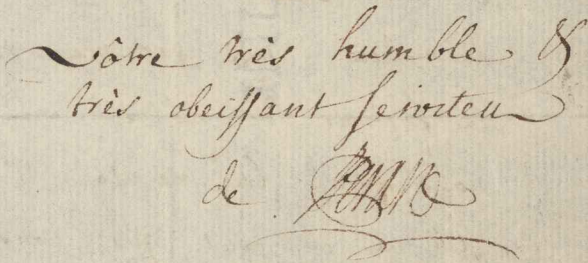 Vôtre très humble &
très obeissant serviteur
de